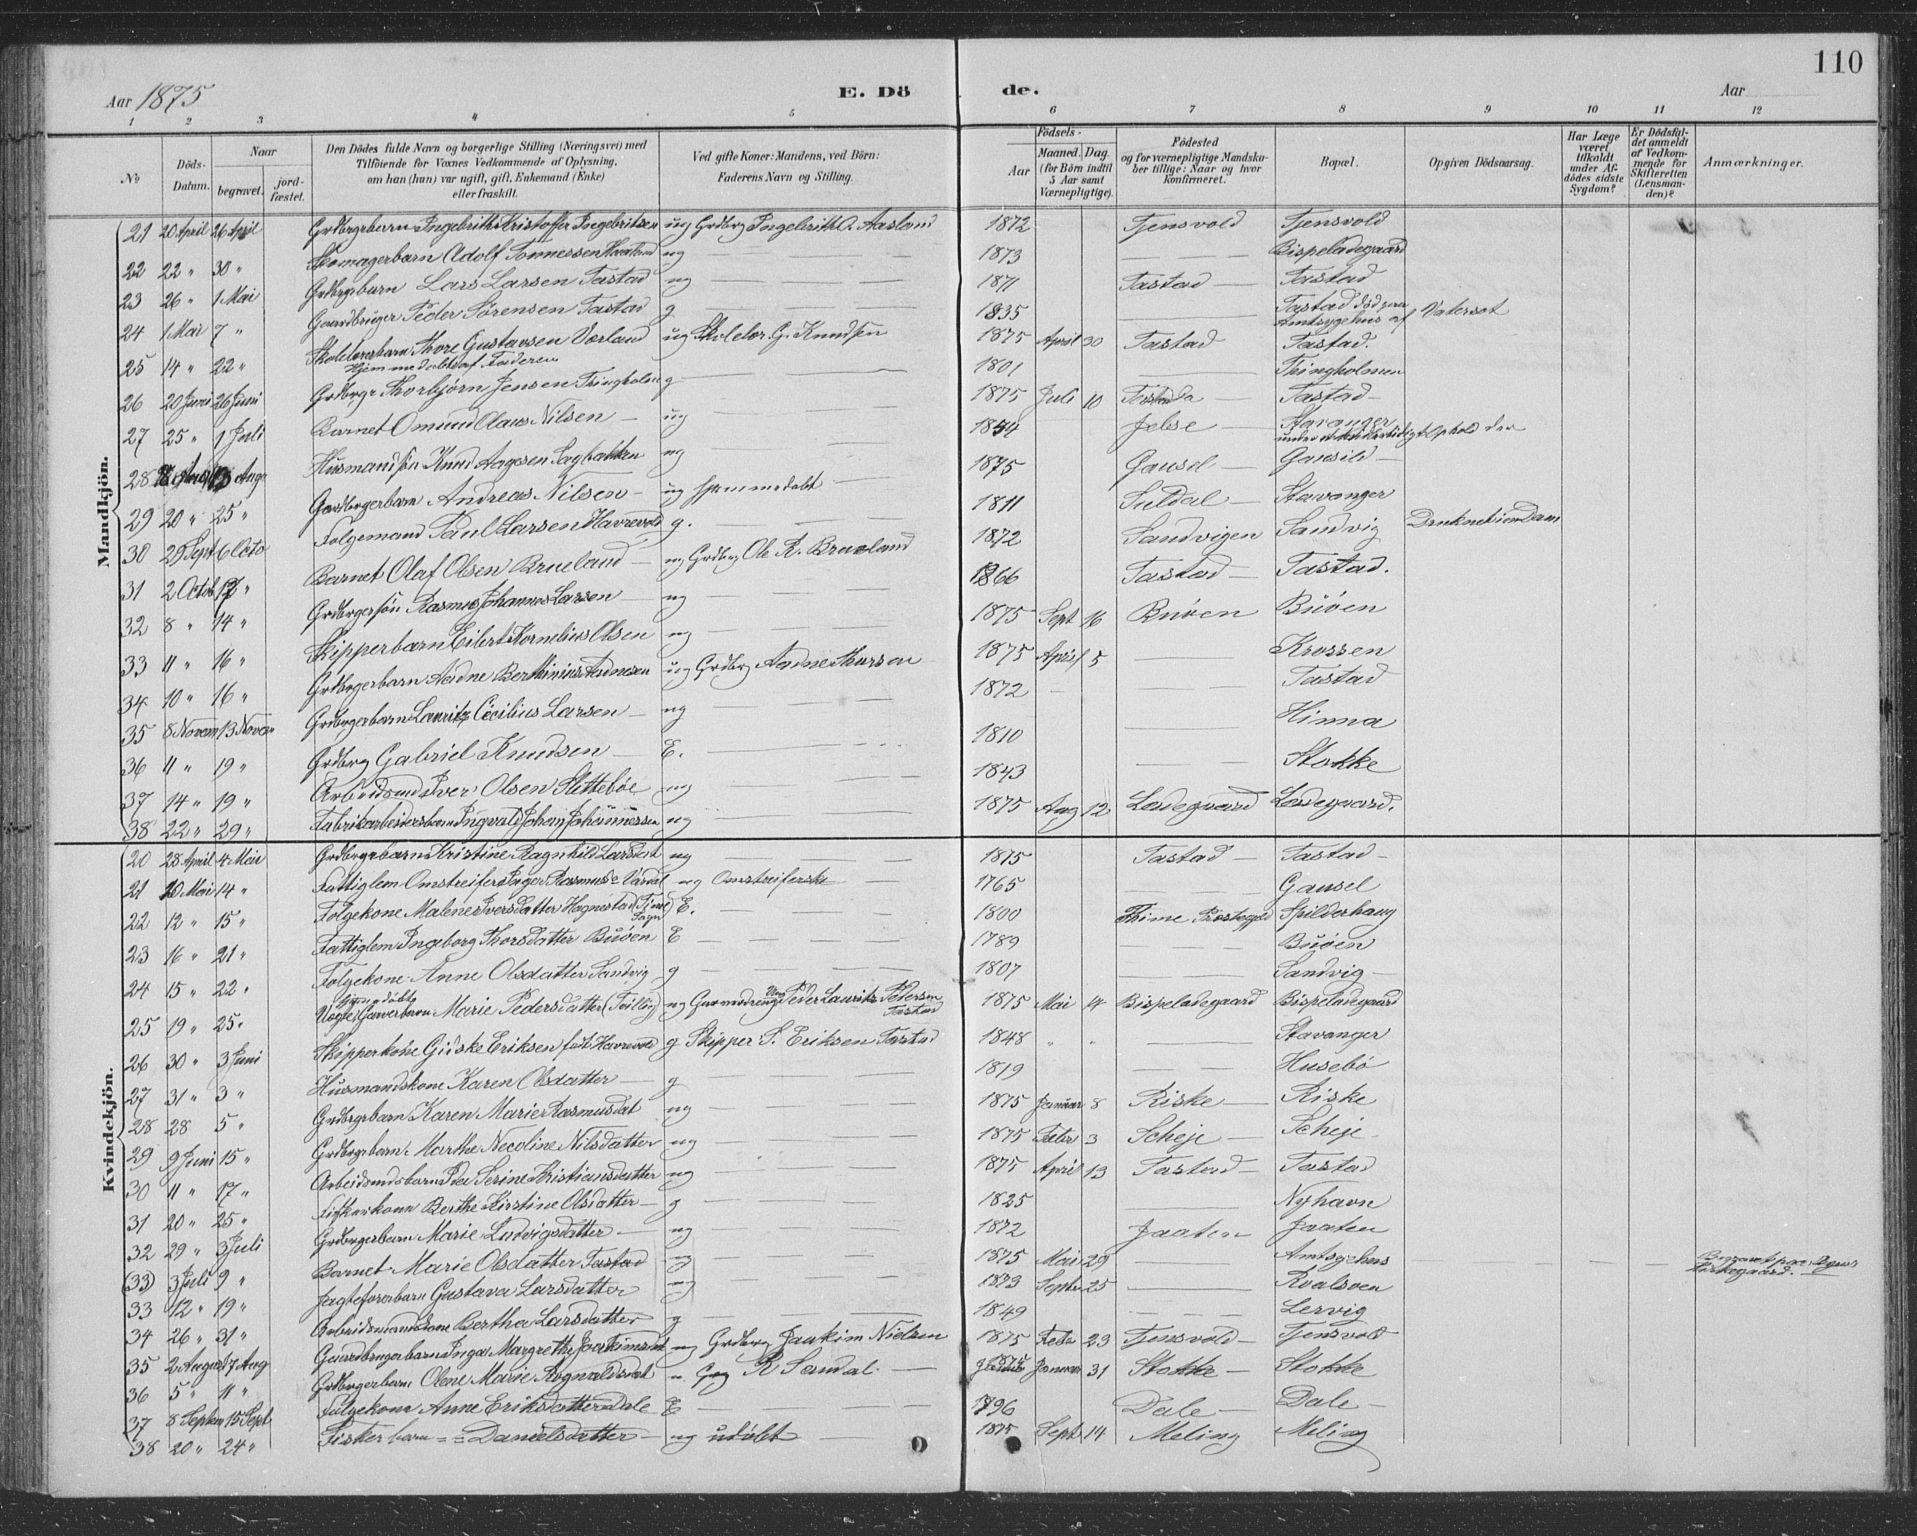 110
Aar 1875
E. Dö
de.
Aar
1 2 3 4 5 6 7 8 9 10 11 12
No
Döds-Datum.
Naar
begravet.
jordfæstet.
Den Dödes fulde Navn og borgerlige Stilling (Næringsvei) med
Tilföiende for Voxnes Vedkommende af Oplysning,
om han (hun) var ugift, gift, Enkemand (Enke)
eller fraskilt.
Ved gifte Koner: Mandens, ved Börn:
Faderens Navn og Stilling.
Födsels-
Aar
Maaned. Dag.
(for Börn indtil
5 Aar samt
Værnepligtige).
Födested
og for værnepligtige Mandska-
ber tillige: Naar og hvor
konfirmeret.
Bopæl.
Opgiven Dödsaarsag.
Har Læge
været
tilkaldt
under Af-
dödes sidste
Sygdom?
Er Dödsfal-
det anmeldt
af Vedkom-
mende for
Skifteretten
(Lensman-
den)?
Anmærkninger.
Mandkjön.
21 20 April 26 April Grdbrgerbarn Ingebrith Kristoffer Ingebritsen ug Grdbrg Ingebrith O. Aasland 1872 Tjensvold Tjensvold
22 22 " 30 " Skomagerbarn Adolf Tønnessen ug 1873 Bispeladegaard
23 26 " 1 Mai Grdbrgerbarn Lars Larsen Tastad ug 1871 Tastad Tastad
24 1 Mai 7 " Gaardbruger Peder Sørensen Tastad g 1835 Tastad død paa Amtsygehus af Vatersot
25 14 " 22 " Skolelærerbarn Thore Gustavsen Vasland ug Skolelær G. Knudsen 1875 April 30 Tastad Tastad.
Hjemmedøbt af Faderen
26 20 Juni 26 Juni Grdbrger Thorbjørn Jensen Tingholm g 1801 Thingholmen
27 25 " 1 Juli Barnet Omund Olaus Nilsen ug 1875 Juli 10 Tastad
28 Aug Husmandsøn Knud Aagesen Sagbakken ug 1854 Jelse Stavanger
under et midlertidigt Ophold der
29 20 " 25 " Grdbrgerbarn Andreas Nilsen ug hjemmedøbt 1875 Gausel Gausel
30 29 Sept 6 Octo Folgemand Paul Larsen Havrevold g. 1811 Suldal Stavanger
31 2 Octob " Barnet Olaf Olsen Brueland ug Grdbrg Ole R. Brueland 1872 Sandvigen Sandvig Druknet i en Dam
32 8 " 14 " Grdbrgersøn Rasmus Johannes Larsen ug 1866 Tastad Tastad.
33 11 " 16 " Skipperbarn Eilert Kornelius Olsen ug 1875 Sept 16 Buøen Buøen
34 10 " 16 " Grdbrgerbarn Aadne Berthinius Aadnesen ug Grdbrg Aadne 1875 April 5 Krossen
35 8 Novem 13 Novem Grdbrgerbarn Lauritz Cecilius Larsen ug 1872 Tastad
36 11 " 19 " Grdbrg Gabriel Knudsen E. 1810 Hinna
37 14 " 19 " Arbeidsmd Iver Olsen Slettebøe ug 1843 Stokke
38 22 " 29 " Fabrikarbeidersbarn Ingvald Johan Johannessen ug 1875 Aug 12 Ladegaard Ladegaard.
Kvindekjön.
20 28 April 4 Mai Grdbrgerbarn Kristine Ragnhild Larsdat ug 1875 Tastad Tastad
21 10 Mai 14 " Fattiglem Omstreifer Inger Rasmusd ug Omstreiferske 1765 Gausel
22 12 " 15 " Folgekone Malene Iversdatter Hognestad (Time Sogn) E. 1800 Thime Præstegjeld Spilderhaug
23 16 " 21 " Fattiglem Ingeborg Thorsdatter Buøen E 1789 Buøen
24 15 " 22 " Folgekone Anne Olsdatter Sandvig g 1807 Sandvig
25 19 " 25 " Uægte Marie Pedersdatter (Tvilling) ug Peder Lauritz Petersen Tastad 1875 Mai 14 Bispeladegaard Bispeladegaard
26 30 " 3 Juni Skipperkone Giske Eriksen født Havrevold g Skipper S. Eriksen Tastad 1848 " " Stavanger
27 31 " 3 " Husmandskone Karen Olsdatter g 1819 Husebø
28 28 5 " Grdbrgerbarn Karen Marie Rasmusdat ug 1875 Januar 8 Riske Riske
29 9 Juni 15 " Grdbrgerbarn Marthe Necoline Nilsdatter ug 1875 Feber 3 Scheje Scheje
30 11 " 17 " Arbeidsmdsbarn Ida Serine Kristiansdatter ug 1875 April 13 Tastad Tastad
31 20 " 25 " Fiskerkone Berthe Kirstine Olsdatter g 1825 Nyhavn
32 29 " 3 Juli Grdbrgerbarn Marie Ludvigsdatter ug 1872 Jaaten Jaaten
(33) 3 Juli 9 " Barnet Marie Olsdatter Tastad ug 1875 Mai 29 Amtsygehus Begravet paa Egnes Kirkegaard.
33 12 " 19 " Jagteforerbarn Gustava Larsdatter ug 1873 Septbr 25 Roalsøen
34 26 " 31 " Arbeidsmandskone Berthe Larsdatter g 1849 Lervig
35 2 August 7 Aug Gaardbrugerbarn Inga Margrethe Joakimsdat ug Grdbrg Joakim Nielsen 1875 Feber 23 Tjensvold Tjensvold
36 5 " 11 " Grdbrgerbarn Olene Marie Rognaldsdat " Grg R. Sandal 1875 Januar 31 Stokke Stokke
37 8 Septem 15 Sept Folgekone Anne Eriksdatter Dale E 1796 Dale Dale
38 20 " 24 " Fiskerbarn Danielsdatter ug udøbt 1875 Sept 14 Meling Meling